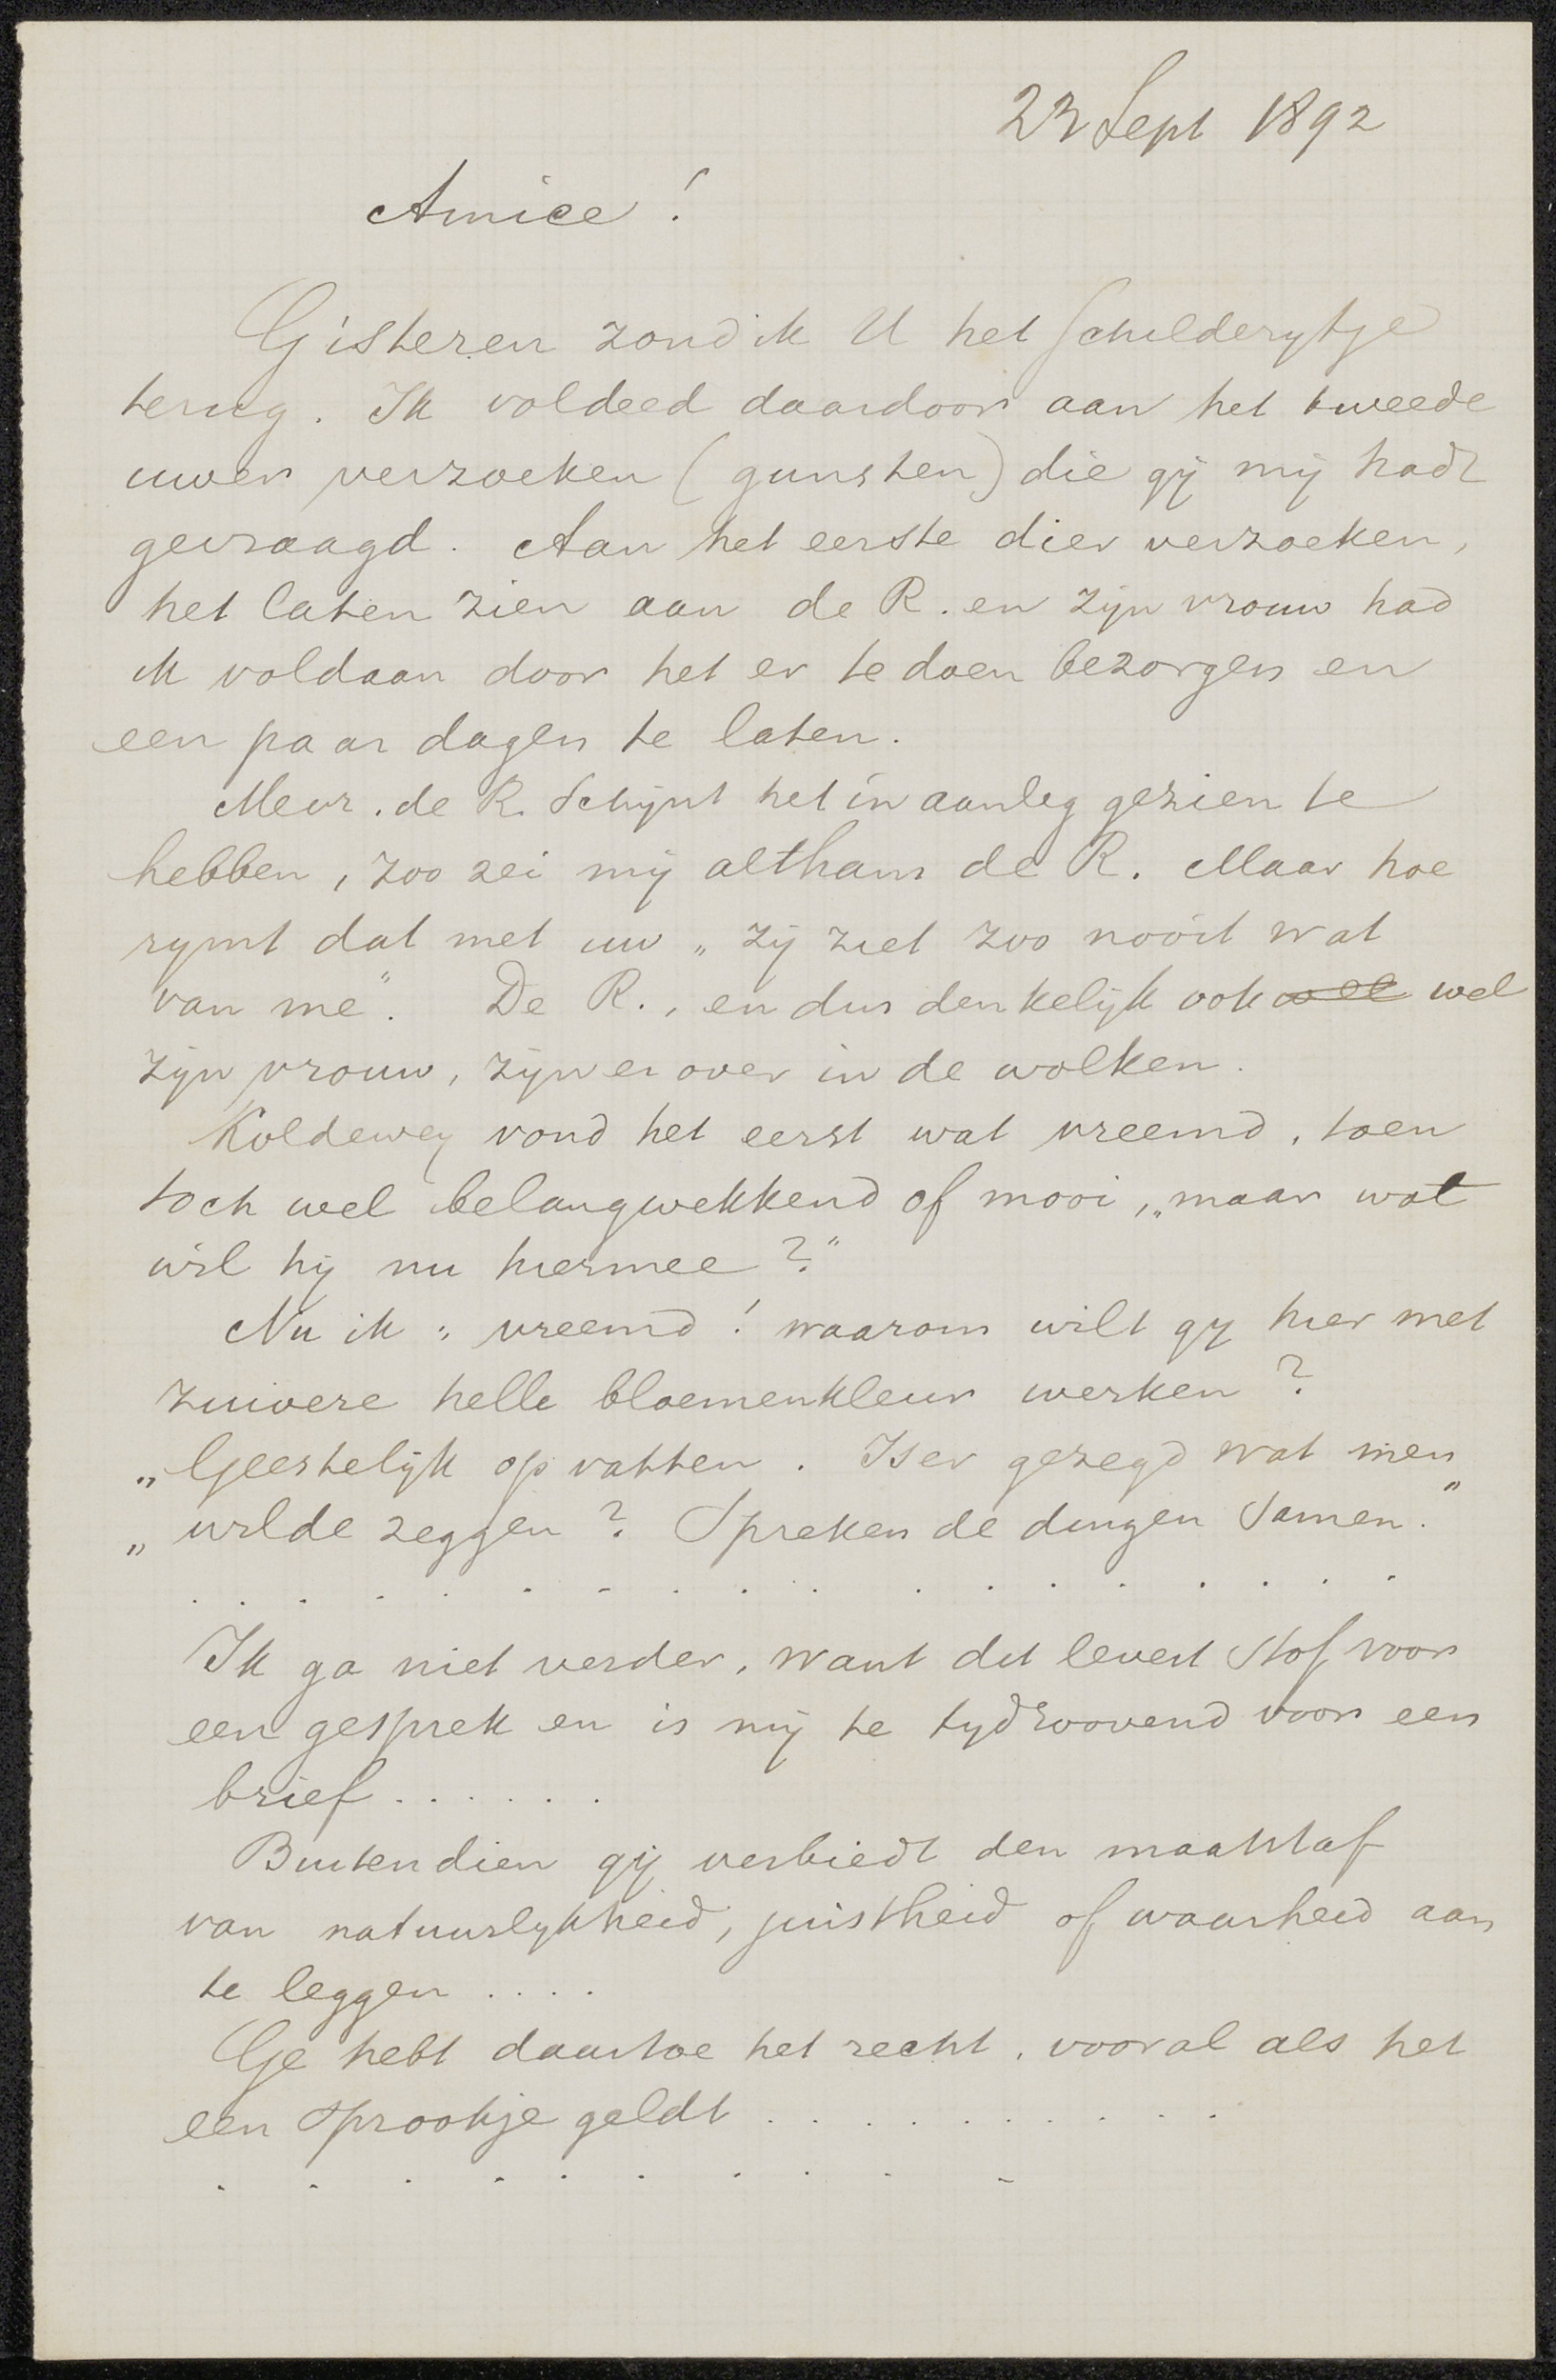 23 Sept 1892
Amice!
Gisteren zond ik U het schilderytje
terug. Ik voldeed daardoor aan het tweede
uwer verzoeken (gunsten) die gij mij hadt
gevraagd. Aan het eerste dier verzoeken,
het laten zien aan de R. en zijn vrouw had
ik voldaan door het er te doen bezorgen en
een paar dagen te laten.
Mevr. de R. schijnt het in aanleg gezien te
hebben, zoo zei mij althans de R. Maar hoe
rymt dat met uw „zij ziet zoo nooit wat
van me". De R., en dus denkelijk ook wel wel
zijn vrouw, zijn er over in de wolken.
Koldewey vond het eerst wat vreemd, toen
toch wel belangwekkend of mooi, „maar wat
wil hij nu hiermee?"
Nu ik: vreemd! waarom wilt gy hier met
zuivere helle bloemenkleur werken?
„Geestelijk opvatten. Is er gezegd wat men
„wilde zeggen? Spreken de dingen samen."
. . . . . . . . . . . . . . . . . .
Ik ga niet verder, want dit levert stof voor
een gesprek en is mij te tydroovend voor een
brief . . . . . .
Buitendien gij verbiedt den maatstaf
van natuurlykheid, juistheid of waarheid aan
te leggen . . . .
Ge hebt daartoe het recht, vooral als het
een sprookje geldt . . . . . . . . . .
. . . . . . . . . .